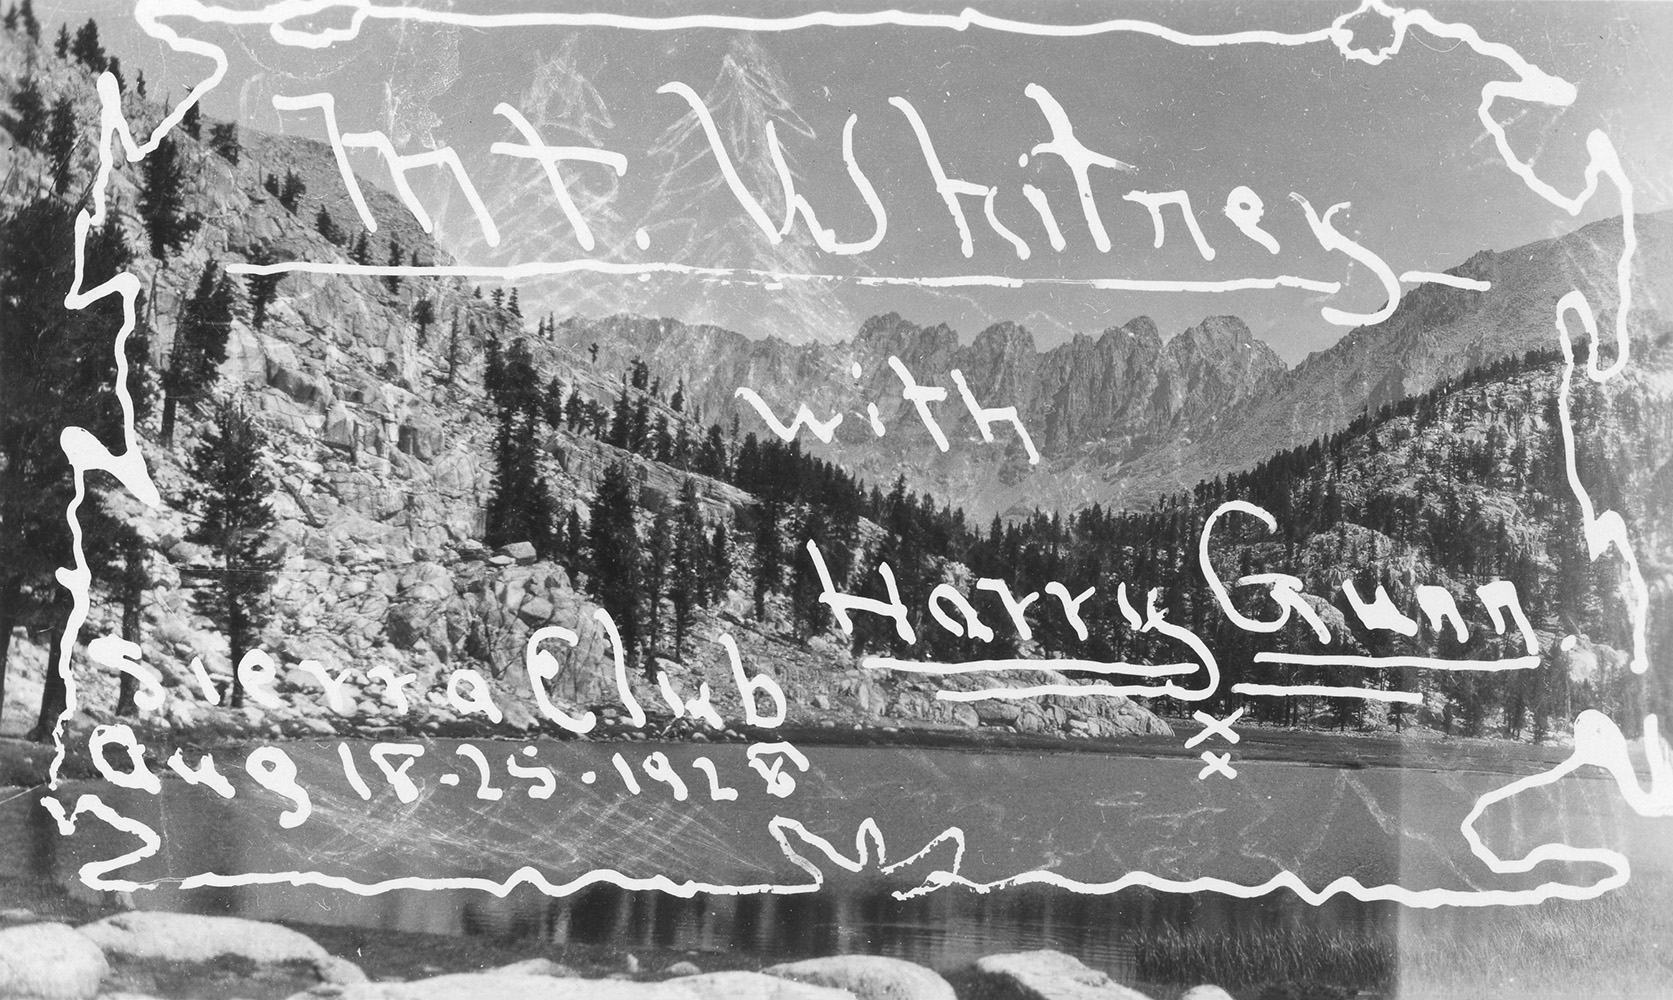 Mt. Whitney
with
Harry Gunn.
Sierra Club
Aug 18-25-1928